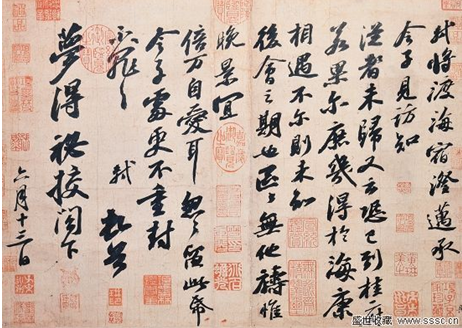 軾將渡海宿澄邁承
令子見訪知
從者未歸又云恐已到桂府
若果尔庶幾得於海康
相遇不尔則未知
後會之期也區〻無他禱惟
晚景宜
倍万自愛耳怱〻留此帋
令子處更不重封
不罪〻 軾 頓首
夢得祕校閣下
六月十三日
盛世收藏 www.sssc.cn